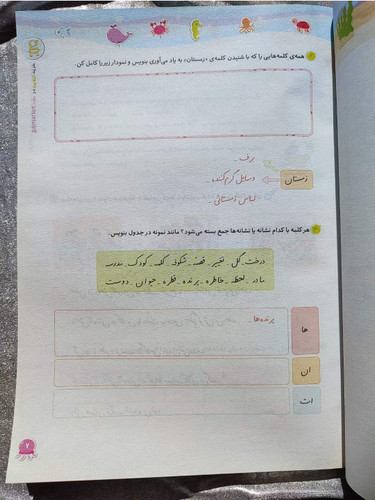 همه‌ی کلمه‌هایی را که با شنیدن کلمه‌ی «زمستان» به یاد می‌آوری بنویس و نمودار زیر را کامل کن.
برف ـ
زمستان
وسایل گرم‌کننده ـ
لباس زمستانی ـ
هر کلمه با کدام نشانه یا نشانه‌ها جمع بسته می‌شود؟ مانند نمونه در جدول بنویس.
درخت ـ گل ـ تغییر ـ قصه ـ شکوفه ـ کلمه ـ کودک ـ مدرسه
مادر ـ لحظه ـ خاطره ـ پرنده ـ قطره ـ حیوان ـ دوست
ها
پرنده‌ها ـ
ان
ات
۷